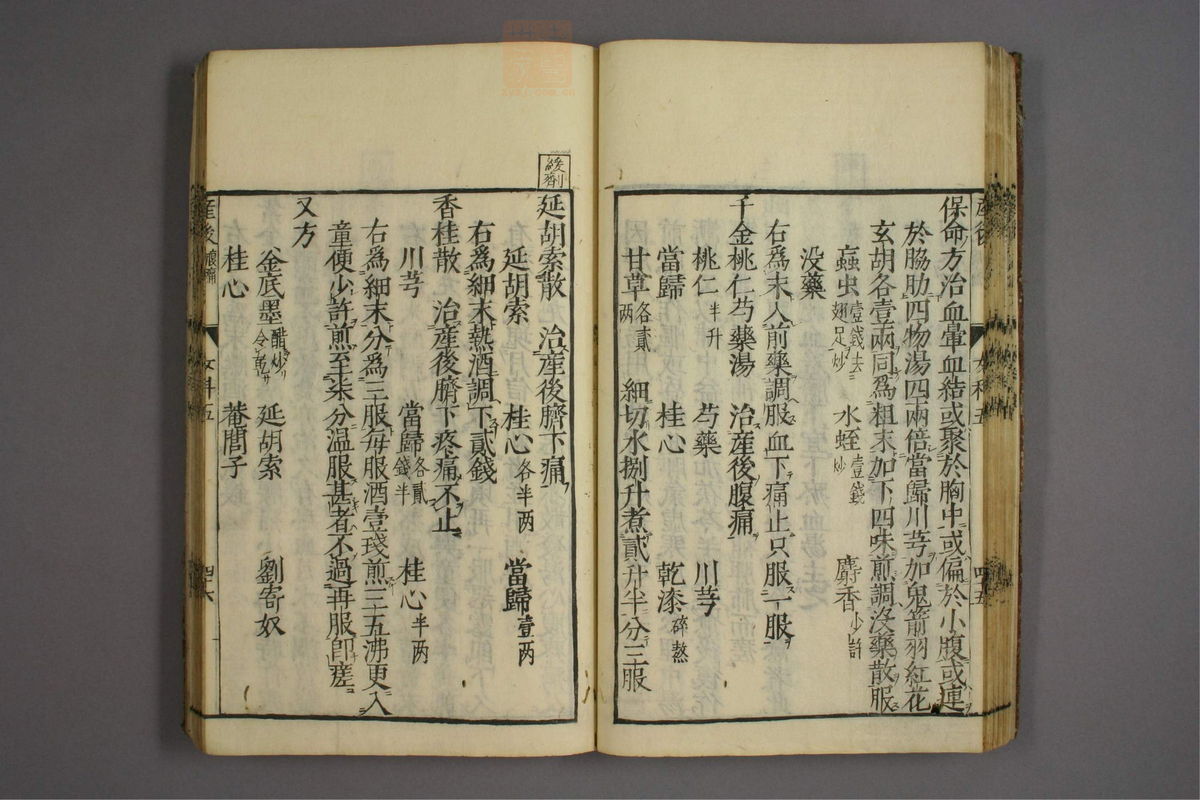 保命方治血暈血結或聚於胸中或偏於小腹或連
於脇肋四物湯四兩倍當歸川芎加鬼箭羽紅花
玄胡各壹兩同爲粗末加下四味煎調沒藥散服
蝱虫壹錢去翅足炒 水蛭壹錢炒 麝香少許
没藥
右爲末入前藥調服血下痛止只服一服
千金桃仁芍藥湯 治産後腹痛
桃仁半升 芍藥 川芎
當歸 桂心 乾漆碎熬
甘草各貳两 細切水捌升煮貳升半分三服
緩劑
延胡索散 治産後臍下痛
延胡索 桂心各半两 當歸壹两
右爲細末熱酒調下貳錢
香桂散 治産後臍下疼痛不止
川芎 當歸各貳錢半 桂心半两
右爲細末分爲三服每服酒壹琖煎三五沸更入
童便少許煎至柒分温服甚者不過再服卽瘥
又方
釜底墨醋炒令乾 延胡索 劉寄奴
桂心 菴䕡子
産後 女科五 四十五
産後腹痛 女科五 四十六